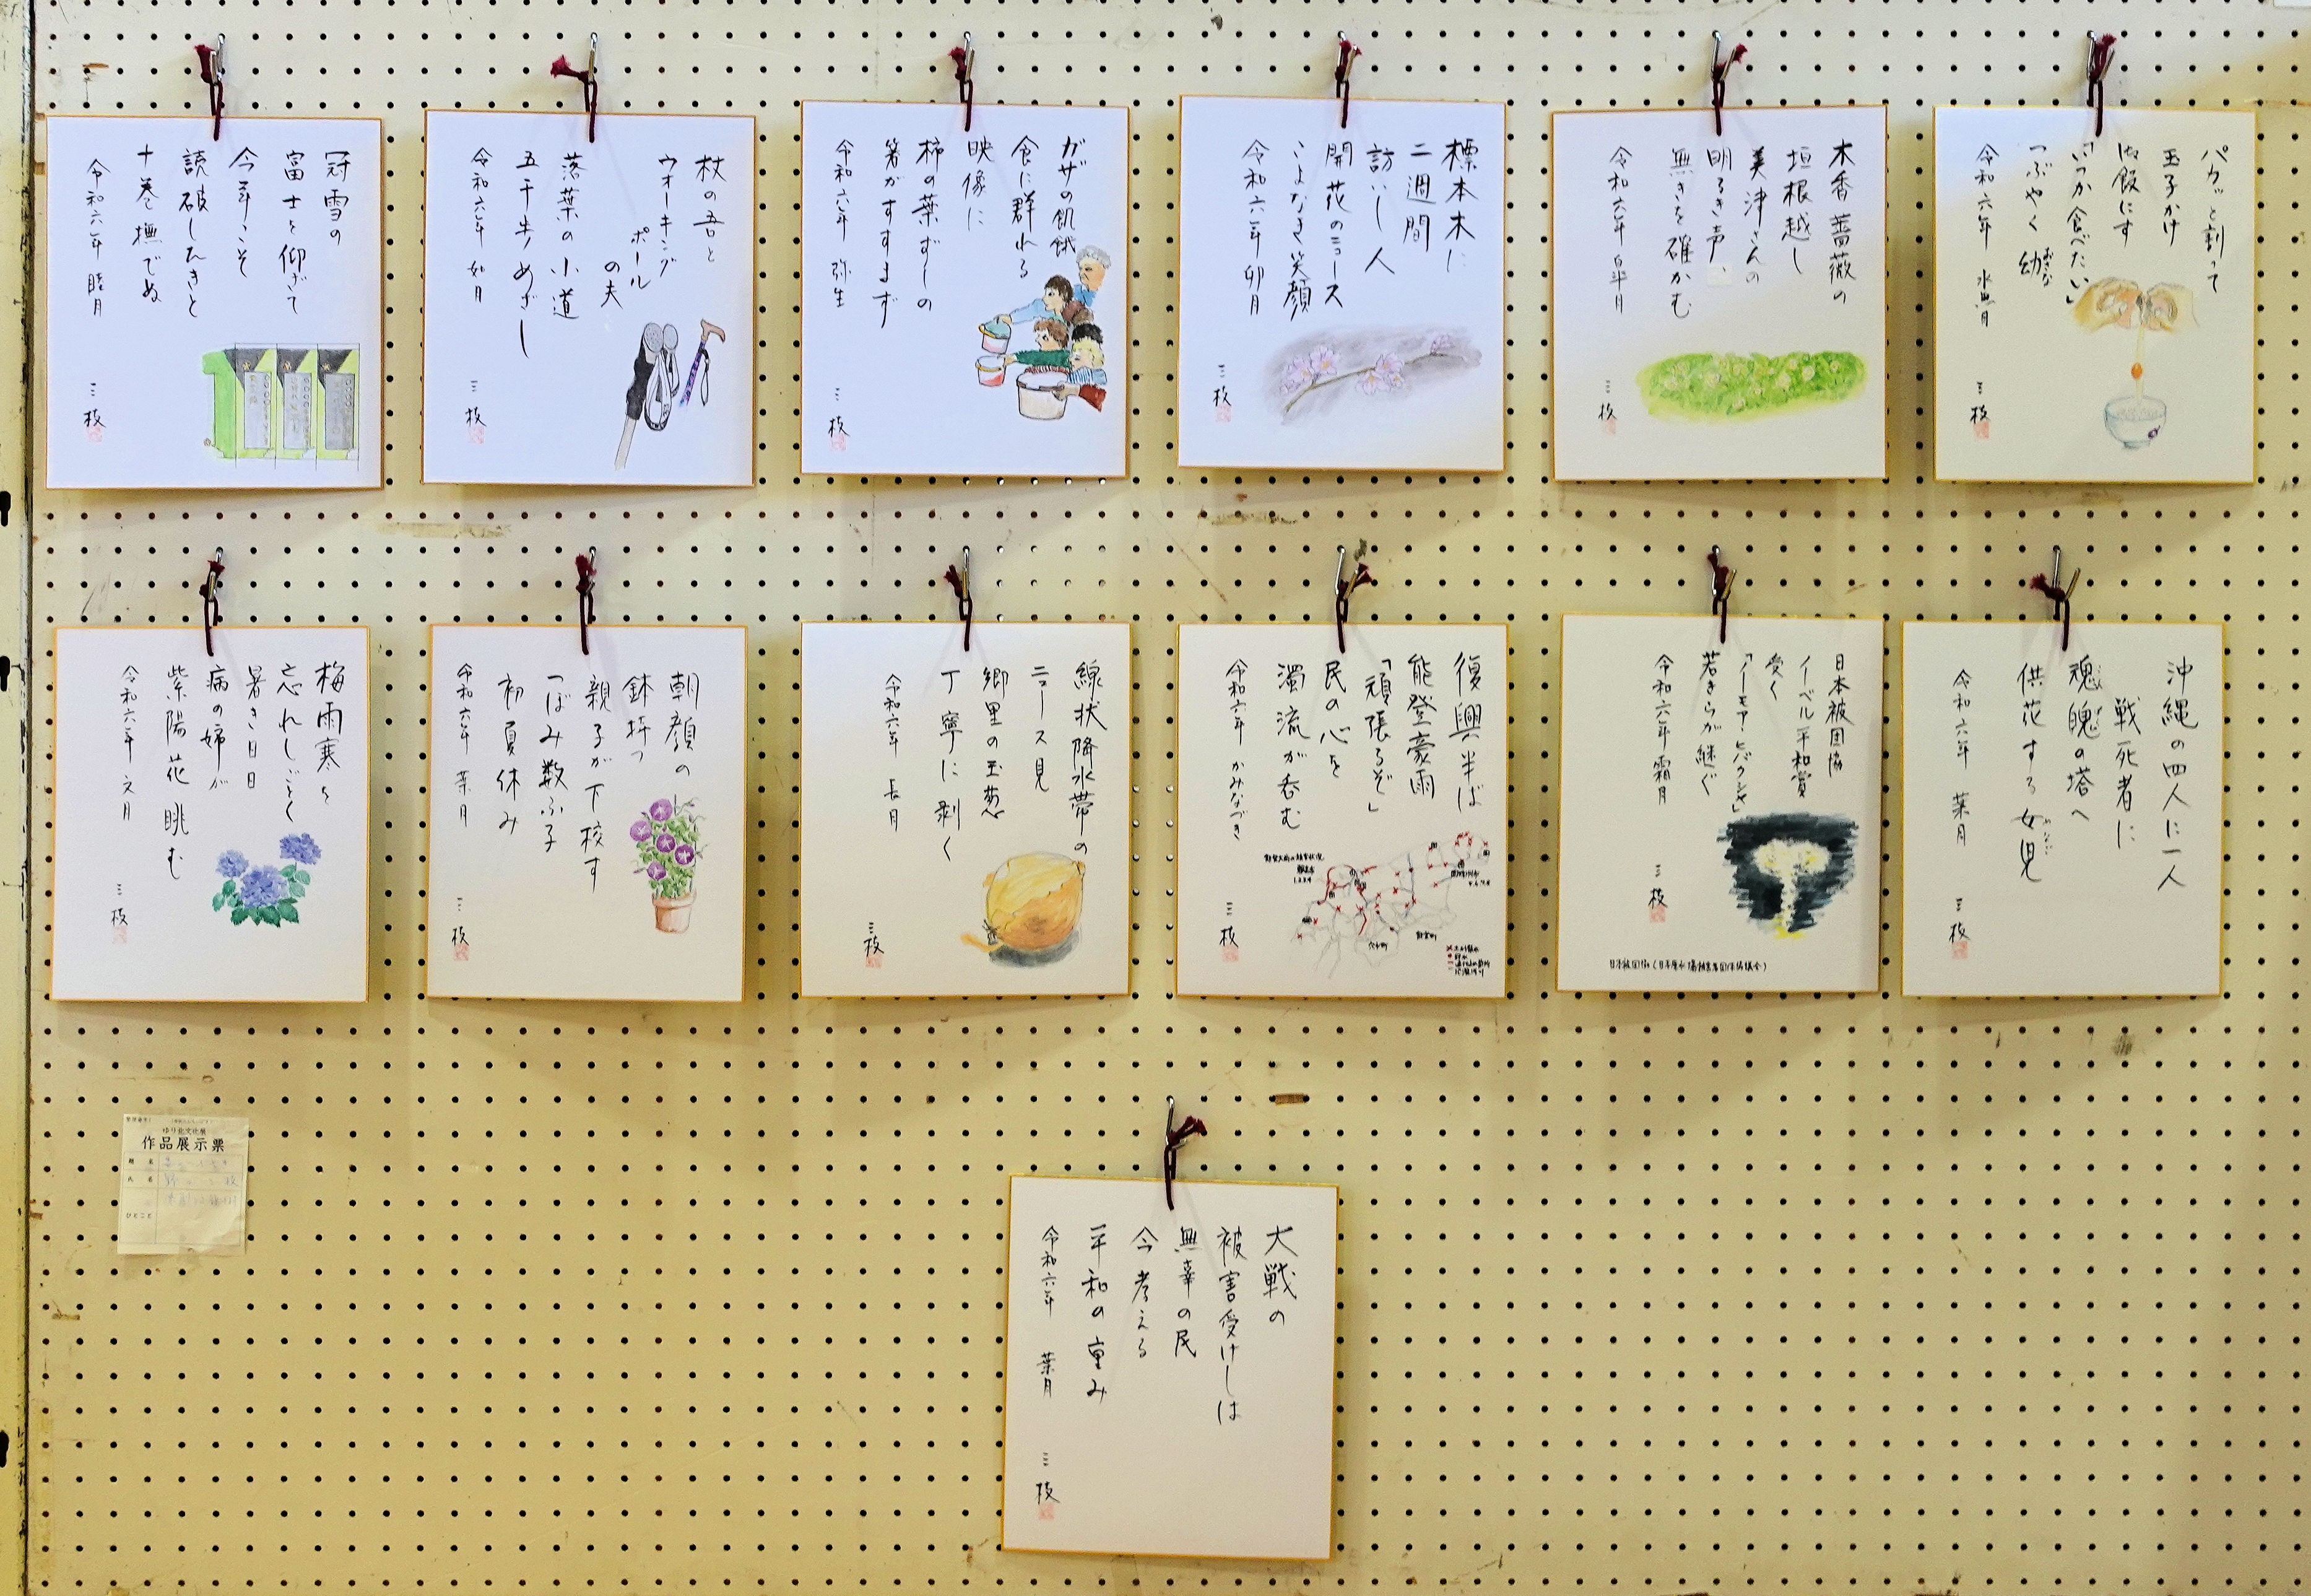 冠雪の
富士を仰ぎて
今年こそ
読破したきと
十巻撫でぬ
令和六年 睦月
三枝
杖の吾と
ウオーキング
ポール
の夫
落葉の小道
五千歩めざし
令和六年 如月
三枝
ガザの飢餓
食に群れる
映像に
柿の葉ずしの
箸がすすまず
令和六年 弥生
三枝
標本木に
二週間
訪いし人
開花のニュース
こよなき笑顔
令和六年 卯月
三枝
木香薔薇の
垣根越し
美津さんの
明るき声、
無きを確かむ
令和六年 皐月
三枝
パカッと割って
玉子かけ
御飯にす
「いつか食べたい」
つぶやく 幼
令和六年 水無月
三枝
梅雨寒を
忘れしごとく
暑き日日
病の婦が
紫陽花眺む
令和六年 文月
三枝
朝顔の
鉢持つ
親子が下校す
つぼみ数ふ子
初夏休み
令和六年 葉月
三枝
線状降水帯の
ニュース見
郷里の玉葱
丁寧に剥く
令和六年 長月
三枝
復興半ば
能登豪雨
「頑張るぞ」
民の心を
濁流が呑む
令和六年 かみなづき
三枝
日本被団協
ノーベル平和賞
受く
「ノーモア・ヒバクシャ」
若きらが継ぐ
令和六年 霜月
三枝
沖縄の四人に一人
戦死者に
魂魄の塔へ
供花する女児
令和六年 葉月
三枝
ゆり北文化展
作品展示票
題名
氏名
ひとこと
大戦の
被害受けしは
無辜の民
今考える
平和の重み
令和六年 葉月
三枝